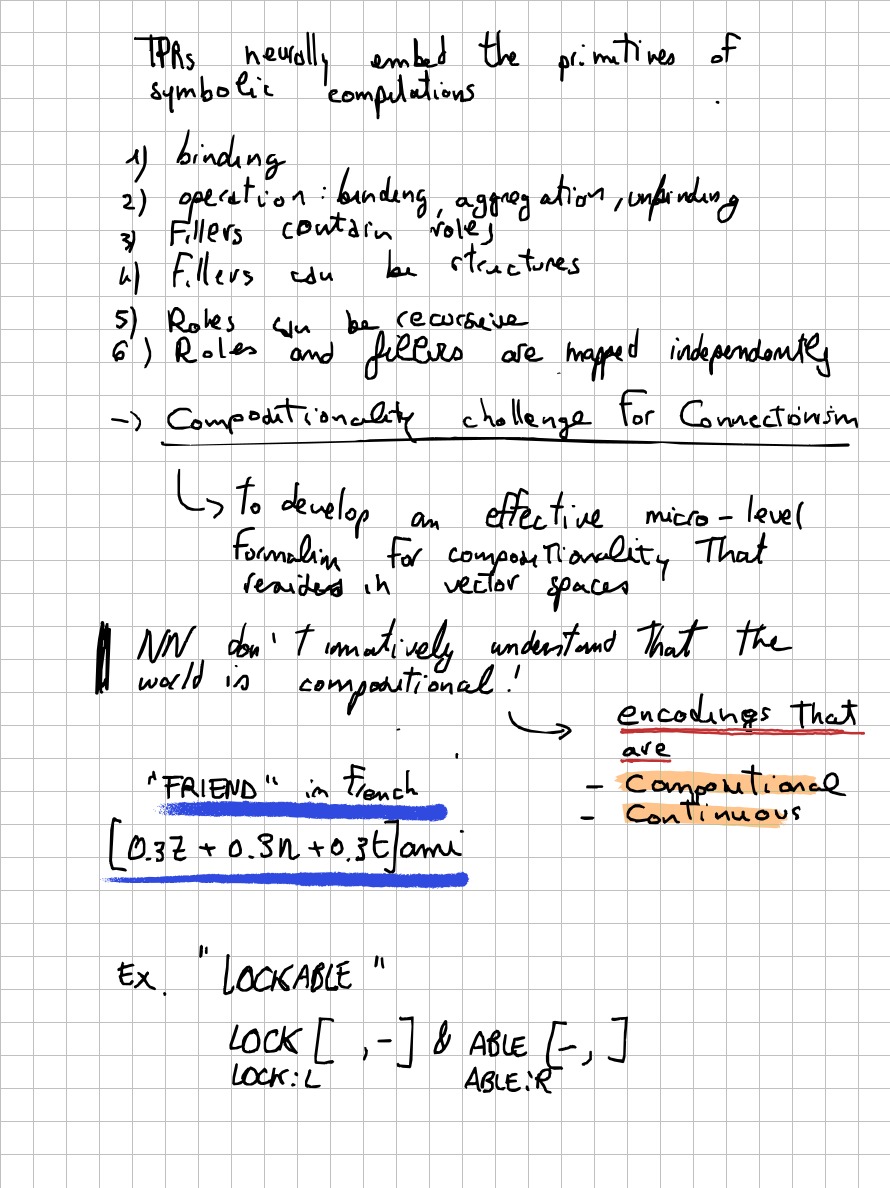 TPRs neurally embed the primitives of
symbolic computations
1) binding
2) operation : binding, aggregation, unbinding
3) Fillers contain roles
4) Fillers can be structures
5) Roles can be recursive
6) Roles and fillers are mapped independently
-> Compositionality challenge for Connectionism
↳ To develop an effective micro-level
formalim for compositionality That
resides in vector spaces
NN don't innatively understand That the
world is compositional!
encodings That
are
- Compositional
- Continuous
"FRIEND" in French
[0.3z + 0.3n + 0.3t]ami
Ex. "LOCKABLE"
LOCK [ , -] & ABLE [-, ]
LOCK:L ABLE:R